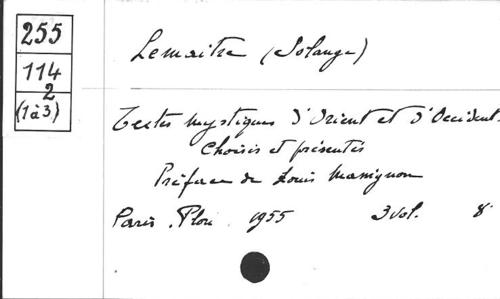 255
114
2
(1à3)
Lemaitre (Solange)
Textes mystiques d'Orient et d'Occident.
Choisis et présentés
Préface de Louis Massignon
Paris. Plon. 1955 3 vol. 8°